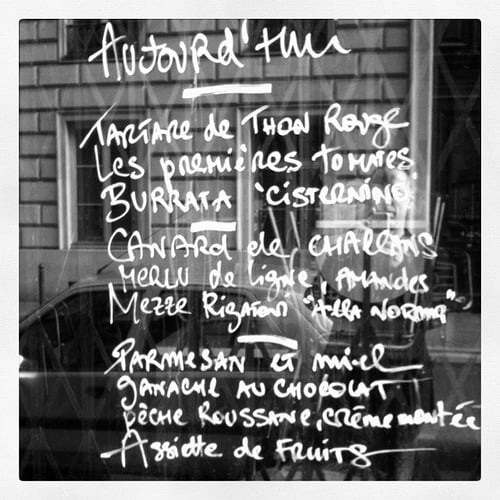 Aujourd'hui
TARTARE de THON Rouge
Les premières tomates
BURRATA "CISTERNINO"
CANARD de CHALLANS
MERLU de ligne, AMANDES
Mezze Rigatoni "Alla NORMA"
PARMESAN et miel
GANACHE AU CHOCOLAT
pêche ROUSSANE, crème montée
Assiette de FRUITS